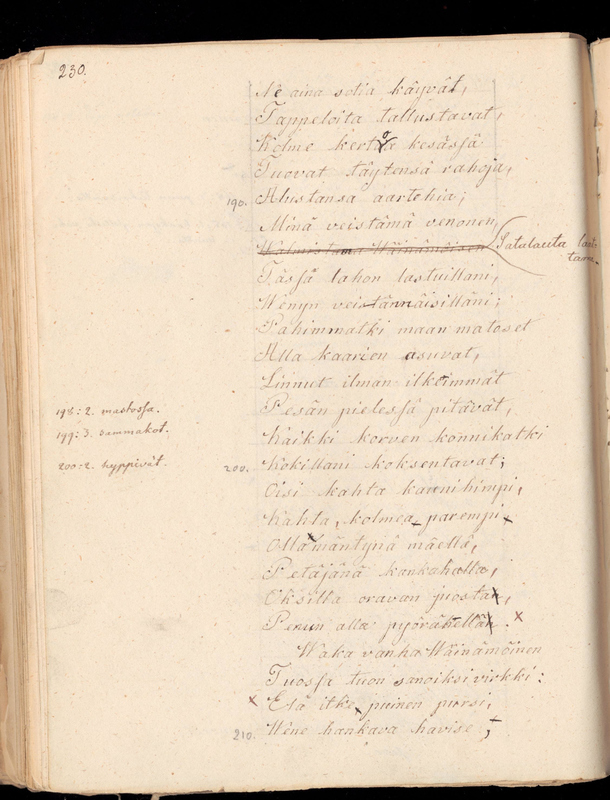 230.
Ne aina sotia käyvät,
Tappeloita tallustavat,
Kolme kertoa kesässä
Tuovat täytensä rahoja,
190. Alustansa aartehia;
Minä veistämä venonen,
Walmistama Wäinämöisen
Satalauta lai-
tama.
Tässä lahon lastuillani,
Wenyn veistännäisilläni;
Pahimmatki maan matoset
Alla kaarien asuvat,
Linnut ilman ilkeimmät
Pesän pielessä pitävät,
198: 2. mastossa.
Kaikki korven konnikatki
199: 3. sammakot.
200. Kokillani koksentavat;
200: 2. hyppivät.
Oisi kahta kaunihimpi,
Kahta, kolmea parempi
Olla mäntynä mäellä,
Petäjänä kankahalla,
Oksilla oravan juosta,
Penun alla pyörähellän.
Waka vanha Wäinämöinen
Tuossa tuon sanoiksi virkki:
Elä itke, puinen pursi,
210. Wene hankava havise;